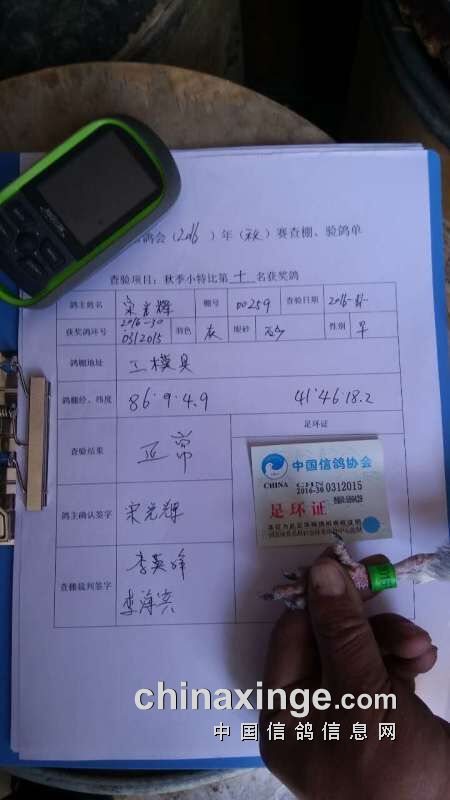 鸽会(2016)年(秋)赛查棚、验鸽单
查验项目:秋季小特比第十名获奖鸽
鸽主姓名 宋光辉 棚号 00259 查验日期 2016-
获奖鸽环号 2016-30 0312015 羽色 灰 眼砂 性别
鸽棚地址 工模具
鸽棚经、纬度 86·9·4.9 41·46 18.2
查验结果 正常 足环证
中国信鸽协会
CHINA CHN
2016-30 0312015
足环证
鸽主确认签字 宋光辉
查棚裁判签字 李英峰
李海滨
chinaxinge.com
中国信鸽信息网